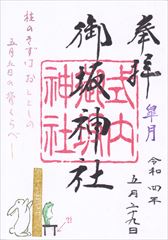 奉拝
皐月
令和四年
五月二十九日
式内
御坂
神社
御坂神社
柱のきずは おととしの
五月五日の背くらべ〜